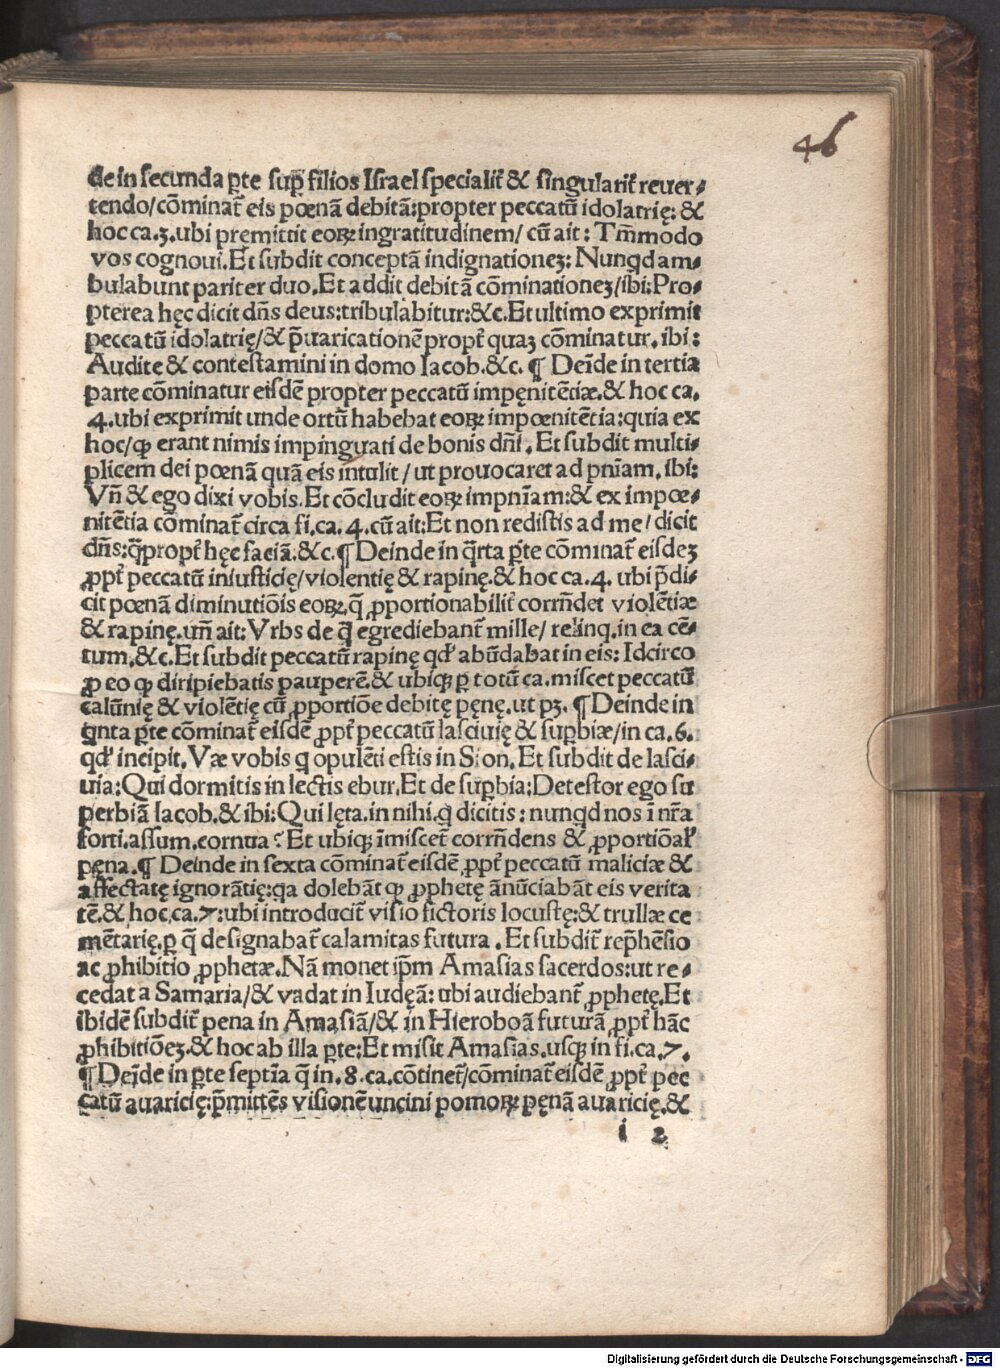 46
de in secunda ꝑte sup̄ filios Israel specialit̃ & singularit̃ reuer⸗
tendo/cōminat̃ eis pœnā debitā:propter peccatū idolatrię: &
hoc ca.3.ubi premittit eoꝝ ingratitudinem/ cū ait: Tm̄modo
vos cognoui.Et subdit conceptā indignationeꝫ: Nunqd am⸗
bulabunt pariter duo.Et addit debitā cōminationeꝫ/ibi:Pro⸗
pterea hęc dicit dn̄s deus:tribulabitur:&c.Et ultimo exprimit
peccatū idolatrię/& p̄uaricationē propt̃ quaꝫ cōminatur. ibi:
Audite & contestamini in domo Iacob.&c. ¶ Deīde in tertia
parte cōminatur eisdē propter peccatū impęnitētiæ.& hoc ca.
4.ubi exprimit unde ortū habebat eoꝝ impœnitētia:quia ex
hoc/ꝙ erant nimis impinguati de bonis dn̄i . Et subdit multi⸗
plicem dei pœnā quā eis intulit/ ut prouocaret ad pn̄iam. ibi:
Vn̄ & ego dixi vobis.Et cōcludit eoꝝ impn̄iam:& ex impœ⸗
nitētia cōminat̃ circa fi.ca. 4. cū ait:Et non redistis ad me/ dicit
dn̄s:q̄propt̃ hęc faciā.&c.¶Deinde in q̄rta ꝑte cōminat̃ eisdeꝫ
ꝓpt̃ peccatū iniusticię/violentię & rapinę.& hoc ca.4. ubi p̄di⸗
cit pœnā diminutiōis eoꝝ.q̄ ꝓportionabilit̃ corrn̄det violētiæ
& rapinę.un̄ ait: Vrbs de q̄ egrediebant̃ mille/ relinq.in ea cē⸗
tum.&c.Et subdit peccatū rapinę qd̓ abūdabat in eis: Idcirco
ꝓ eo ꝙ diripiebatis pauperē.& ubiqꝫ ꝑ totū ca. miscet peccatū
calūnię & violētię cū ꝓportiōe debitę pęnę.ut pꝫ. ¶ Deinde in
qnta ꝑte cōminat̃ eisdē ꝓpt̃ peccatū lasciuię & suꝑbiæ/in ca.6.
qd̓ incipit. Væ vobis q opulēti estis in Sion. Et subdit de lasci⸗
uia:Qui dormitis in lectis ebur.Et de suꝑbia:Detestor ego su
perbiā Iacob.& ibi:Qui lęta.in nihi.q dicitis : nunqd nos ī nr̄a
forti.assum.cornua ? Et ubiqꝫ īmiscet̃ corrn̄dens & ꝓportiōał
pęna.¶ Deinde in sexta cōminat̃ eisdē ꝓpt̃ peccatū maliciæ &
affectatę ignorātię:qa dolebāt ꝙ ꝓphetę ānūciabāt eis verita
tē.& hoc.ca.7:ubi introducit̃ visio fictoris locustę:& trullæ ce
mētarię.ꝑ q̄ designabat̃ calamitas futura . Et subdit̃ rep̄hēsio
ac ꝓhibitio ꝓphetæ.Nā monet ip̄m Amasias sacerdos:ut re⸗
cedat a Samaria/& vadat in Iudęā: ubi audiebant̃ ꝓphetę.Et
ibidē subdit̃ pena in Amasiā/& in Hieroboā futurā ꝓpt̃ hāc
ꝓhibitiōeꝫ.& hoc ab illa ꝑte:Et misit Amasias.usqꝫ in fi.ca.7.
¶Deīde in ꝑte septīa q̄ in .8.ca.cōtinet̃/cōminat̃ eisdē ꝓpt̃ pec
catū auaricię:p̄mittēs visionē uncini pomoꝝ ꝑ pęnā auaricię.&
i 2
Digitalisierung gefördert durch die Deutsche Forschungsgemeinschaft - DFG